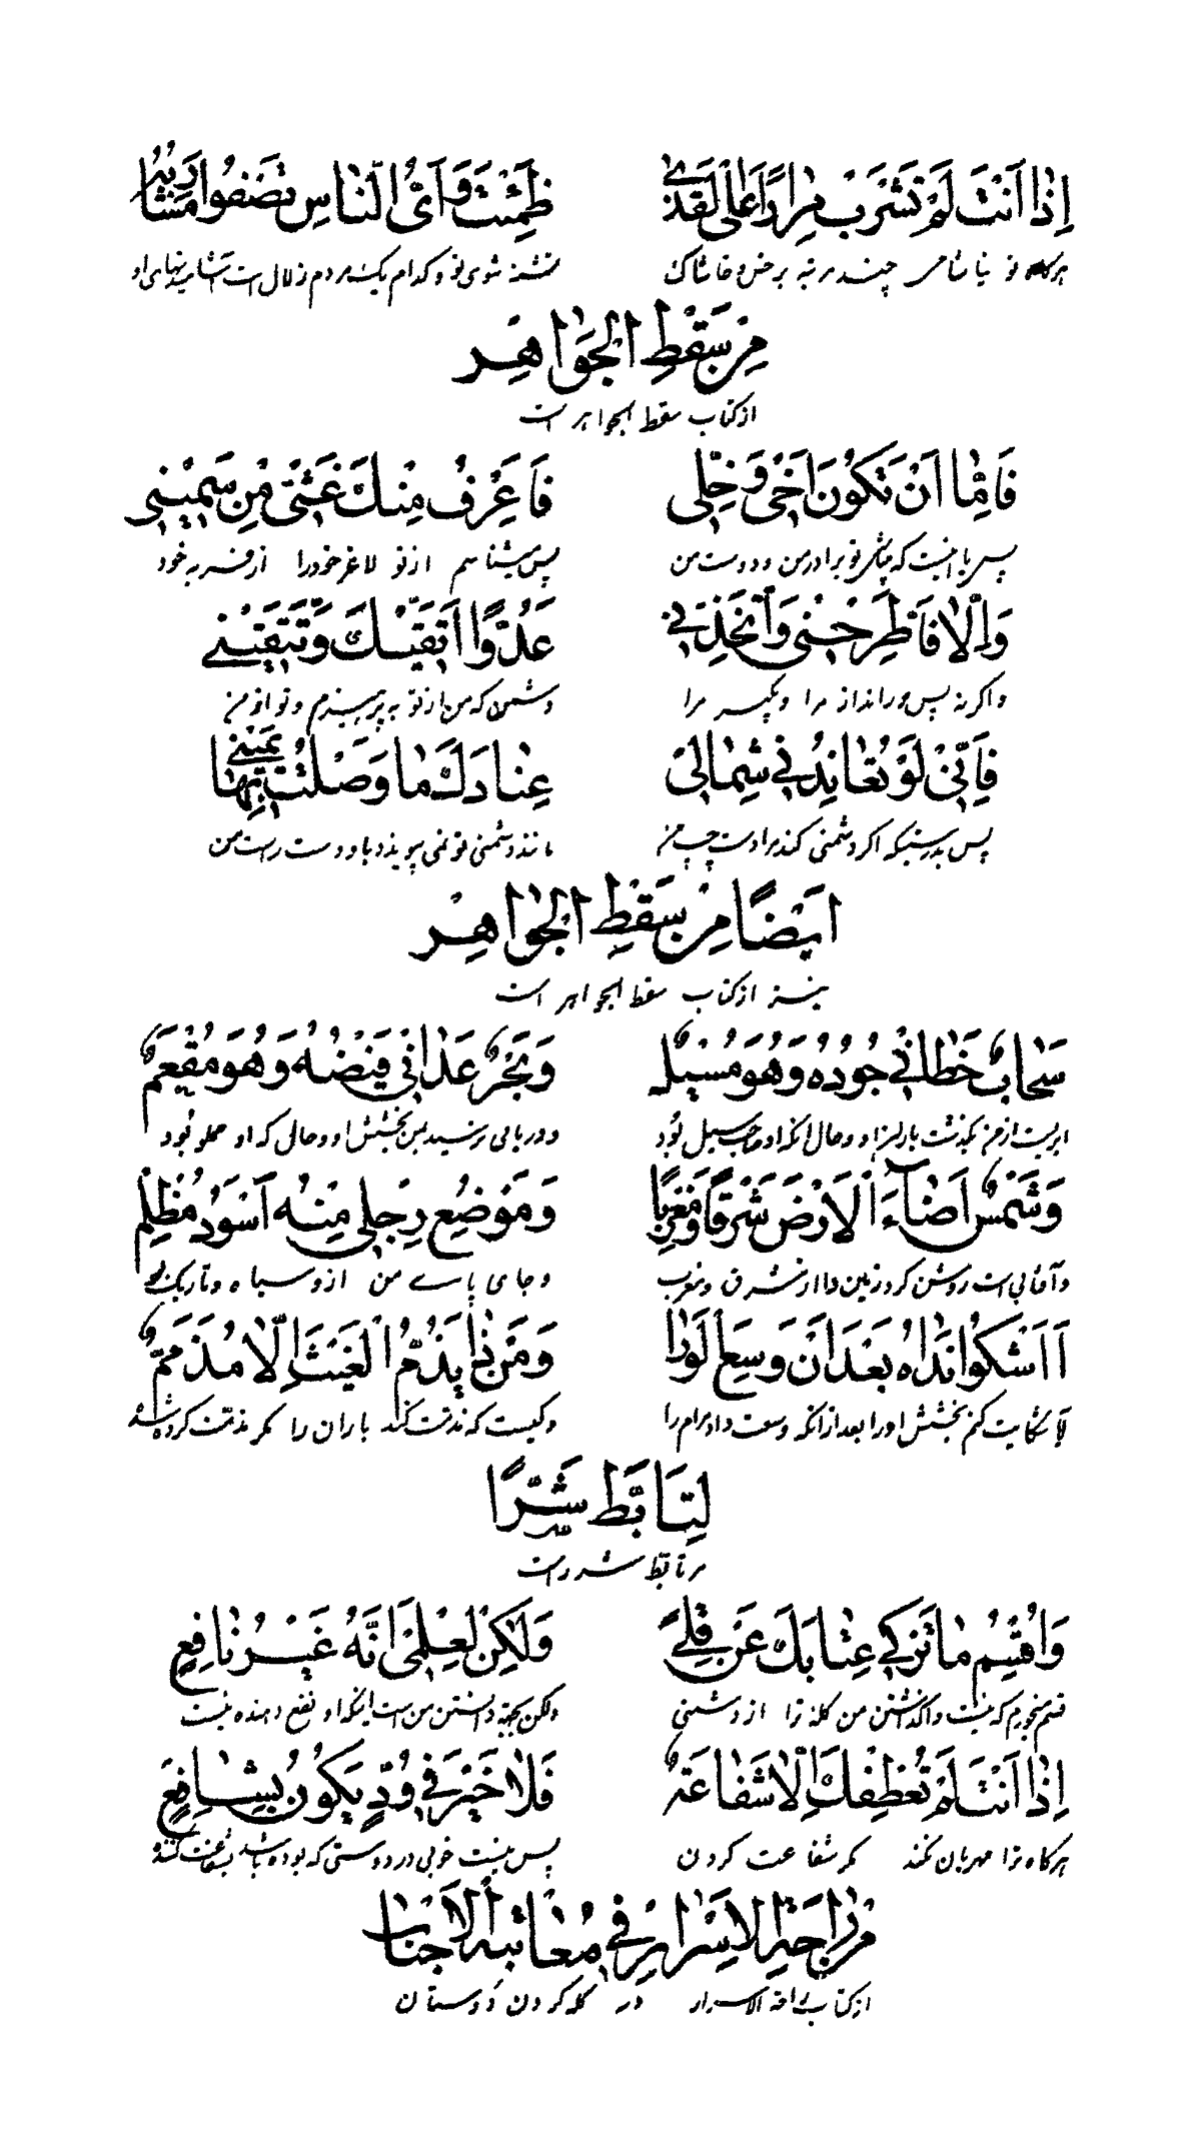 إِذَا أَنْتَ لَمْ تَشْرَبْ مِرَارًا عَلَى الْقَذَى ظَمِئْتَ وَأَيُّ النَّاسِ تَصْفُو مَشَارِبُهُ
هرگاه تو نیاشامی چند مرتبه بر خس و خاشاک تشنه شوی تو و کدام یک مردم زلال است آشامیدنهای او
مِنْ سَقَطِ الْجَوَاهِرِ
از کتاب سقط الجواهر است
فَإِمَّا أَنْ تَكُونَ أَخِي وَخِلِّي فَأَعْرِفُ مِنْكَ غَثِّي مِنْ سَمِينِي
پس یا اینست که میباشی تو برادر من و دوست من پس میشناسم از تو لاغر خود را از فربه خود
وَإِلَّا فَاطَّرِحْنِي وَاتَّخِذْنِي عَدُوًّا أَتَّقِيكَ وَتَتَّقِينِي
و اگر نه پس دور انداز مرا و بگیر مرا دشمن که من از تو بپرهیزم و تو از من
فَإِنِّي لَوْ تُعَانِدُنِي شِمَالِي عِنَادَكَ مَا وَصَلْتُ بِهَا يَمِينِي
پس بدرستیکه اگر دشمنی کند مرا دست چپ من مانند دشمنی تو نمی پیوندد باو دست راست من
أَيْضًا مِنْ سَقَطِ الْجَوَاهِرِ
نیز از کتاب سقط الجواهر است
سَحَابٌ خَطَانِي جُودُهُ وَهُوَ مُسْبِلٌ وَبَحْرٌ عَدَانِي فَيْضُهُ وَهُوَ مُفْعَمٌ
ابریست از من بگذشت باران او و حال آنکه او صاحب سیل بود و دریائی نرسید بمن بخشش او و حال که او مملو بود
وَشَمْسٌ أَضَاءَ الْأَرْضَ شَرْقًا وَمَغْرِبًا وَمَوْضِعُ رِجْلِي مِنْهُ أَسْوَدُ مُظْلِمٌ
و آفتابی است روشن کرد زمین را از مشرق و مغرب و جای پای من از او سیاه و تاریک بود
أَأَشْكُو نَدَاهُ بَعْدَ أَنْ وَسِعَ الْوَرَى وَمَنْ ذَا يَذُمُّ الْغَيْثَ إِلَّا مُذَمَّمٌ
آیا شکایت کنم بخشش او را بعد از آنکه وسعت داد مرام را و کیست که مذمت کند باران را مگر مذمت کرده شده
لِتَأَبَّطَ شَرًّا
مر تابط شر راست
وَأُقْسِمُ مَا تَرْكِي عِتَابَكَ عَنْ قِلًى وَلَكِنْ لِعِلْمِي أَنَّهُ غَيْرُ نَافِعٍ
قسم میخورم که نیست واگذاشتن من گله ترا از دشمنی ولکن بجهة دانستن من است اینکه او نفع دهنده نیست
إِذَا أَنْتَ لَمْ تُعْطِفْكَ إِلَّا شَفَاعَةٌ فَلَا خَيْرَ فِي وُدٍّ يَكُونُ بِشَافِعٍ
هرگاه ترا مهربان نکند مگر شفاعت کردن پس نیست خوبی در دوستی که بوده باشد بشفاعت کننده
مِنْ رَاحَةِ الْأَسْرَارِ فِي مُعَاتَبَةِ الْأَحْبَابِ
از کتاب راحة الاسرار در گله کردن دوستان